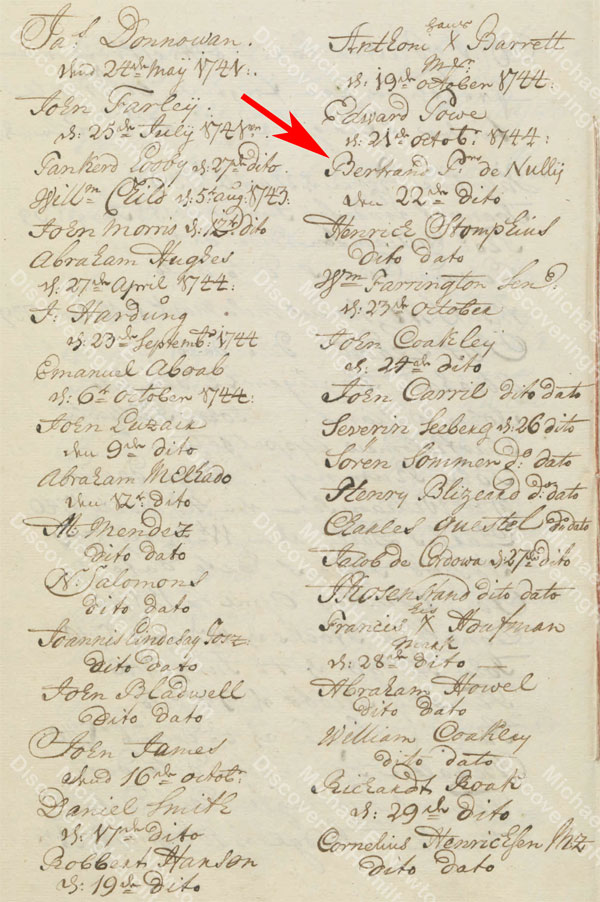 Jas. Donnowan.
d. 24de may 1741:
John Farley.
d: 25de July 1741
Tankerd dito.
Willm. Child d: 5t. aug: 1743.
John Morris d: 12t. dito
Abraham Hughes
d: 27de April 1744:
J: Hardung
d: 23de Septembr. 1744
Emanuel Aboab
d: 6t. october 1744:
John
den 9de dito
Abraham Melhado
den 12t. dito
M: Mendez
dito dato
N: Salomons
dito dato
Joannis Lindesay
dito dato
John Bladwell
dito dato
John James
16de octobr.
Daniel Smith
d: 17de dito
Robbert Hanson
d: 19de dito
Anthoni X Barrett
d: 19de october 1744:
Edward Towe
d: 21de octobr. 1744:
Bertrand Prre. de Nullij
den 22de dito
Henrick Stomphius
dito dato
Wm Farrington Senr.
d: 23de october
John Coakley
d: 24de dito
John Carril dito dato
Severin Seeberg d: 26 dito
Sören Sommer do. dato
Henry Blizeard do: dato
Charles questel do dato
Jacob de Cordowa d: 27de dito
Rosenstand dito dato
his
Francis X Houfman
mark
d: 28de dito
Abraham Howel
dito dato
William Coakley
dito dato
Richardt Roak
d: 29de dito
Cornelius Henricksen Mz
dito dato